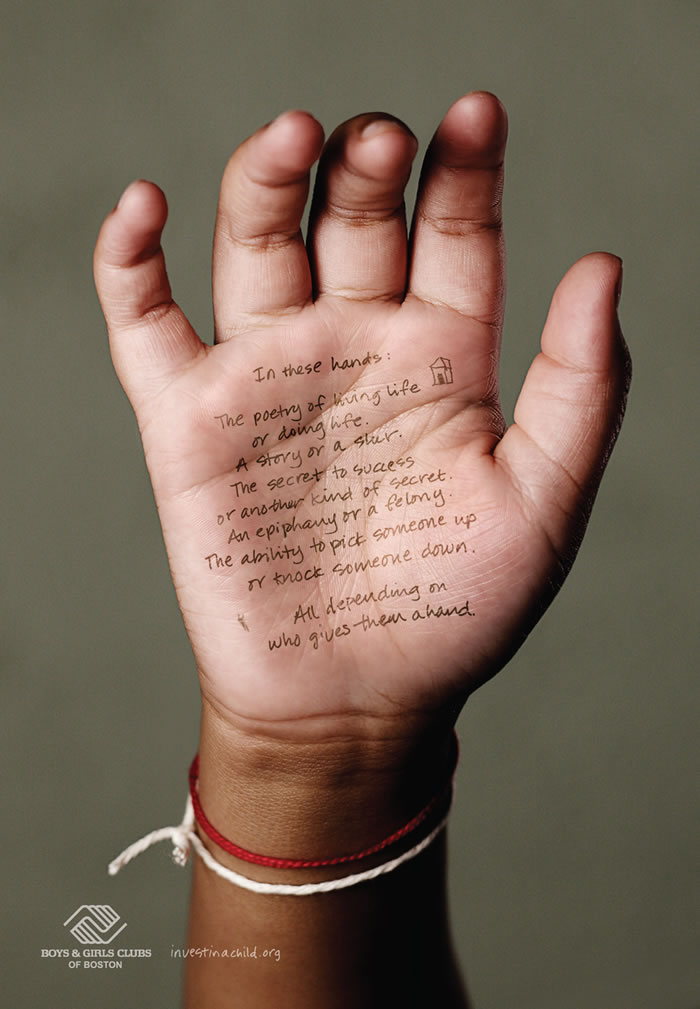 In these hands:
The poetry of living life
or doing life.
A story or a slur.
The secret to success
or another kind of secret.
An epiphany or a felony.
The ability to pick someone up
or knock someone down.
All depending on
who gives them a hand.
BOYS & GIRLS CLUBS
OF BOSTON
investinachild.org